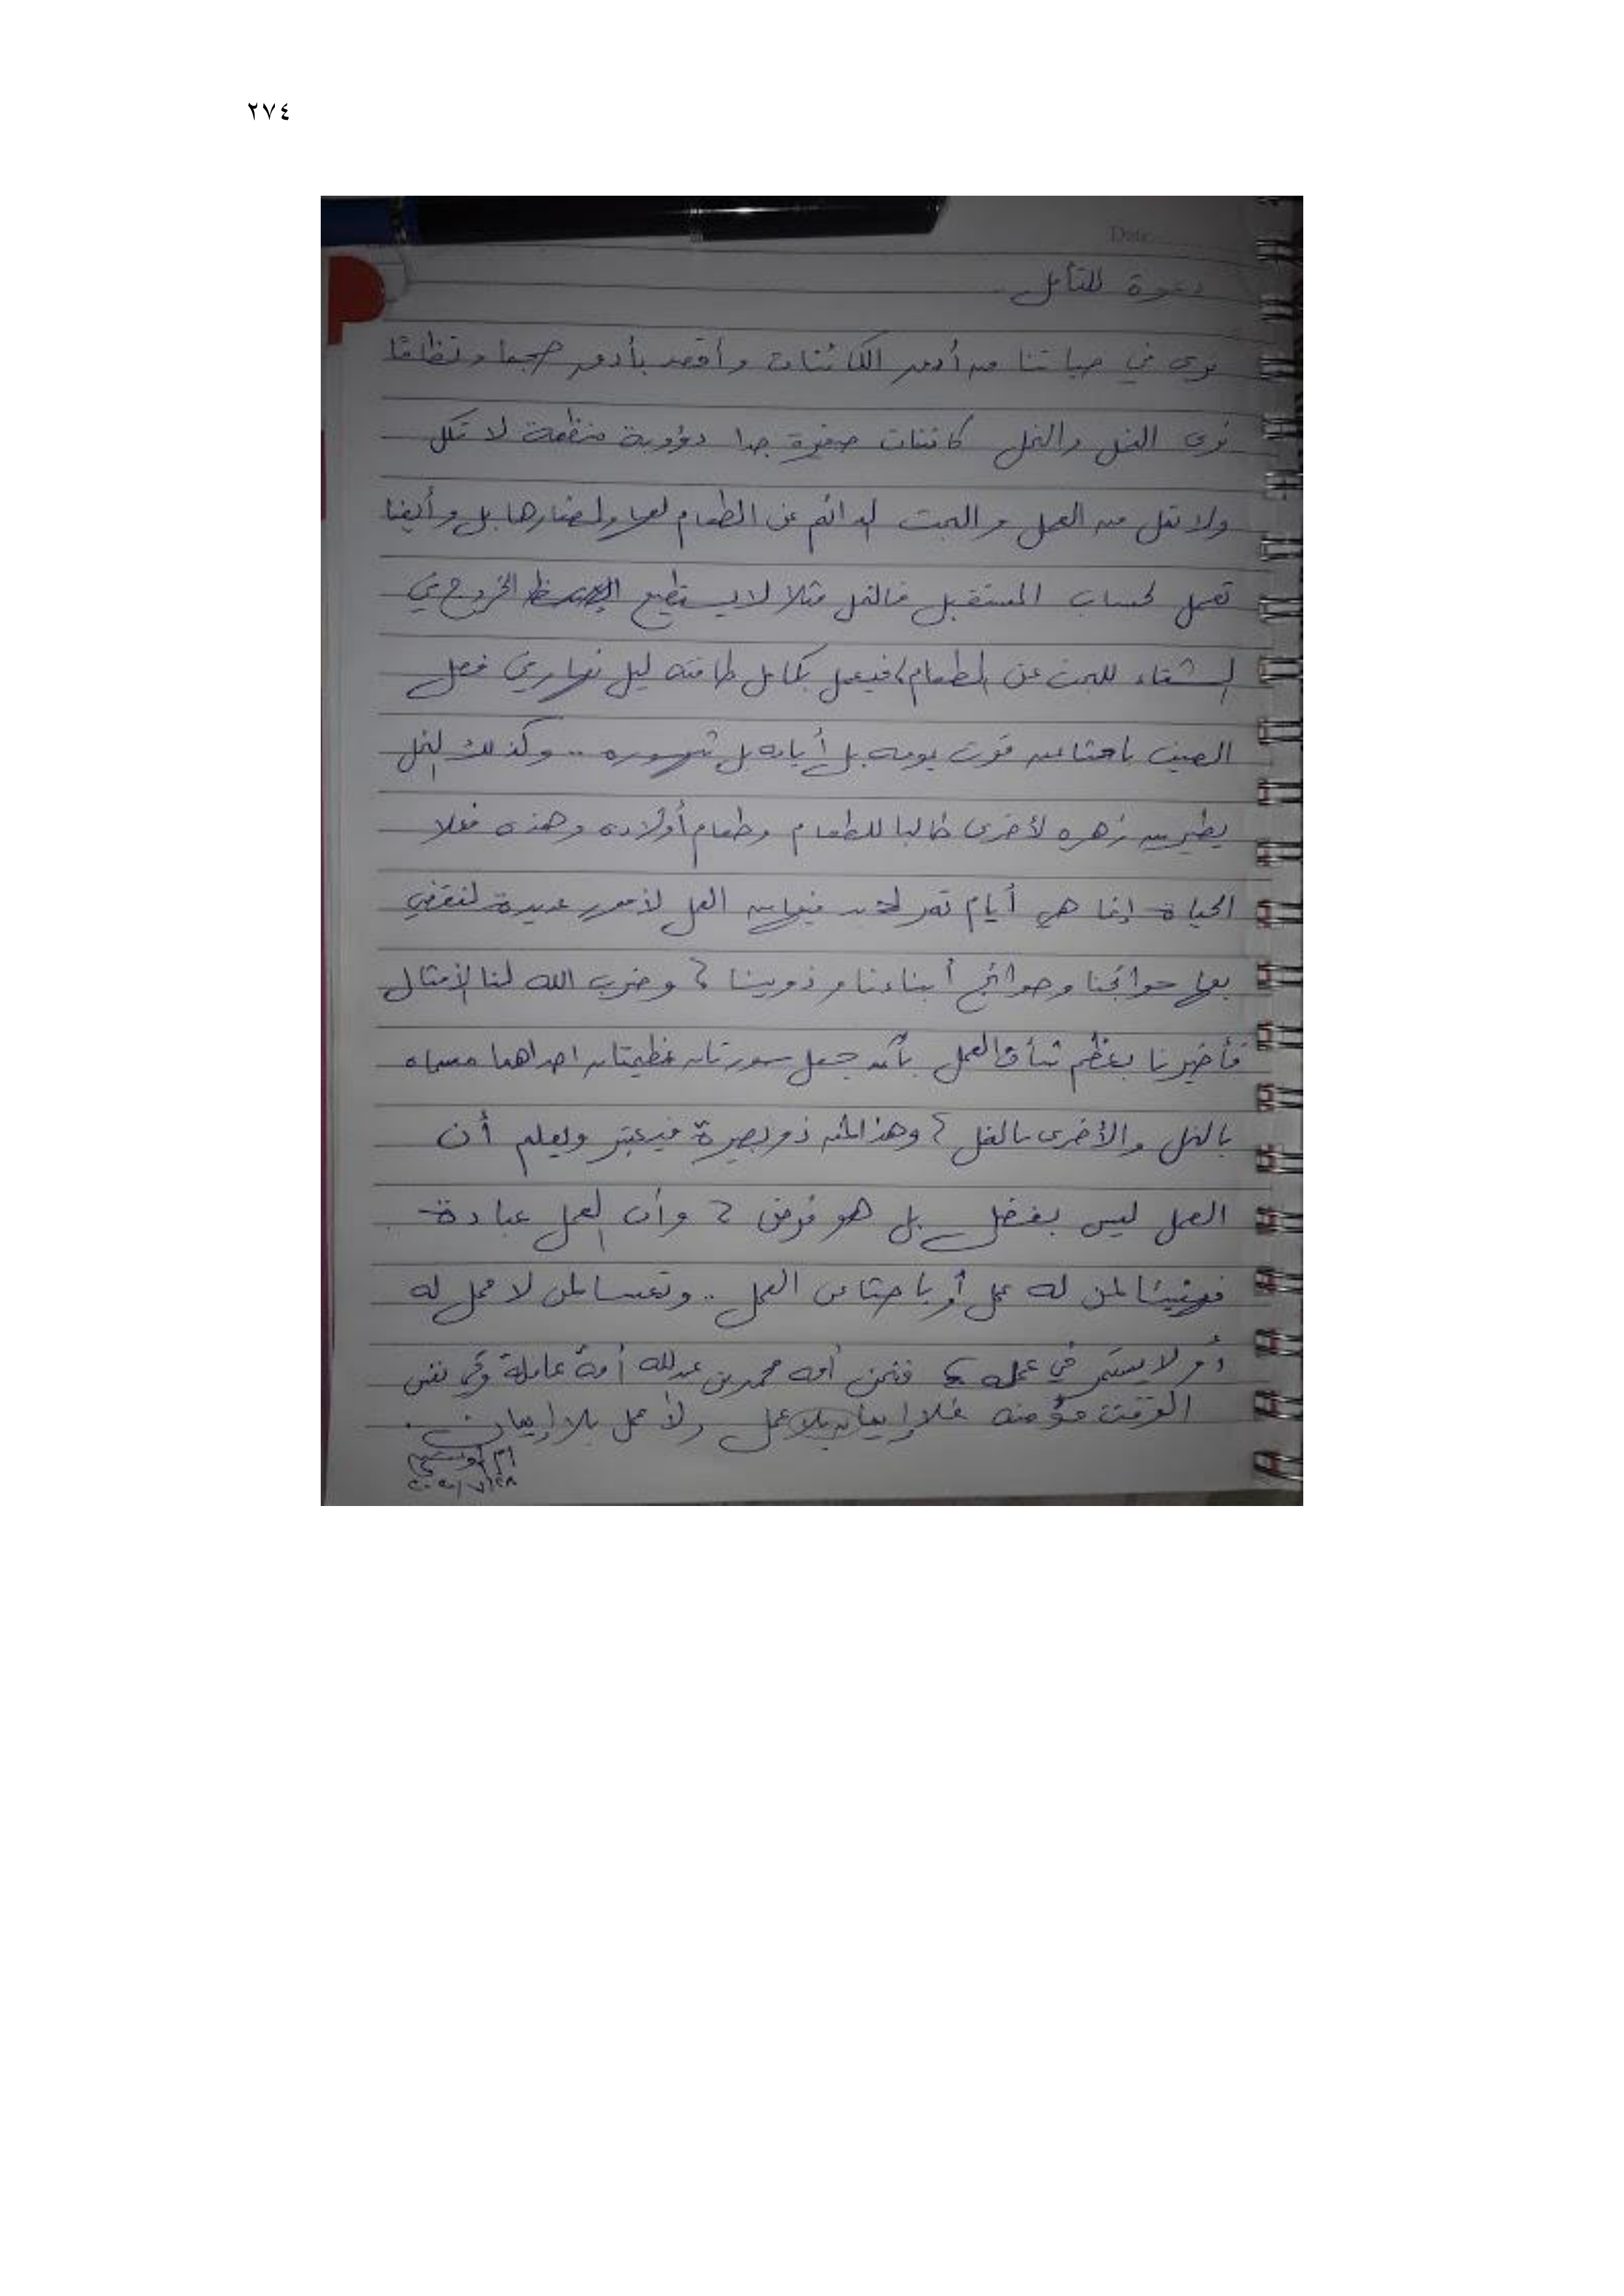 ٢٧٤
Date
دعوة للتأمل
نرى في حياتنا من أدق الكائنات وأقصد بأدق حجما ونظامًا
نرى النمل والنحل كائنات صغيرة جدا دؤوبة منظمة لا تكل
ولا تمل من العمل والبحث الدائم عن الطعام لها ولصغارها بل وأيضا
تعمل لحساب المستقبل فالنمل مثلا لا يستطيع الخروج في
الشتاء للبحث عن الطعام، فيعمل بكامل طاقته ليل نهار في فصل
الصيف باحثا عن قوت يومه بل أيامه بل شهوره .. وكذلك النحل
يطير من زهره لأخرى طالبا للطعام وطعام أولاده وهذه فعلا
الحياة إنما هي أيام تمر لابد فيها من العمل لأمور عديدة لنقضي
بها حوائجنا وحوائج أبناءنا وذوينا، وضرب الله لنا الأمثال
فأخبرنا بعظم شأن العمل بأنه جعل سورتان عظيمتان احداهما مسماه
بالنمل والأخرى بالنحل، وهذا لمن ذو بصيرة فيعتبر ويعلم أن
العمل ليس بفضل بل هو فرض، وأن العمل عبادة
فهنيئا لمن له عمل أو باحثا عن العمل .. وتعسا لمن لا عمل له
أو لا يستمر في عمله، فنحن أمه محمد بن عبدالله أمة عاملة وفي نفس
الوقت مؤمنه فلا إيمان بلا عمل ولا عمل بلا إيمان.